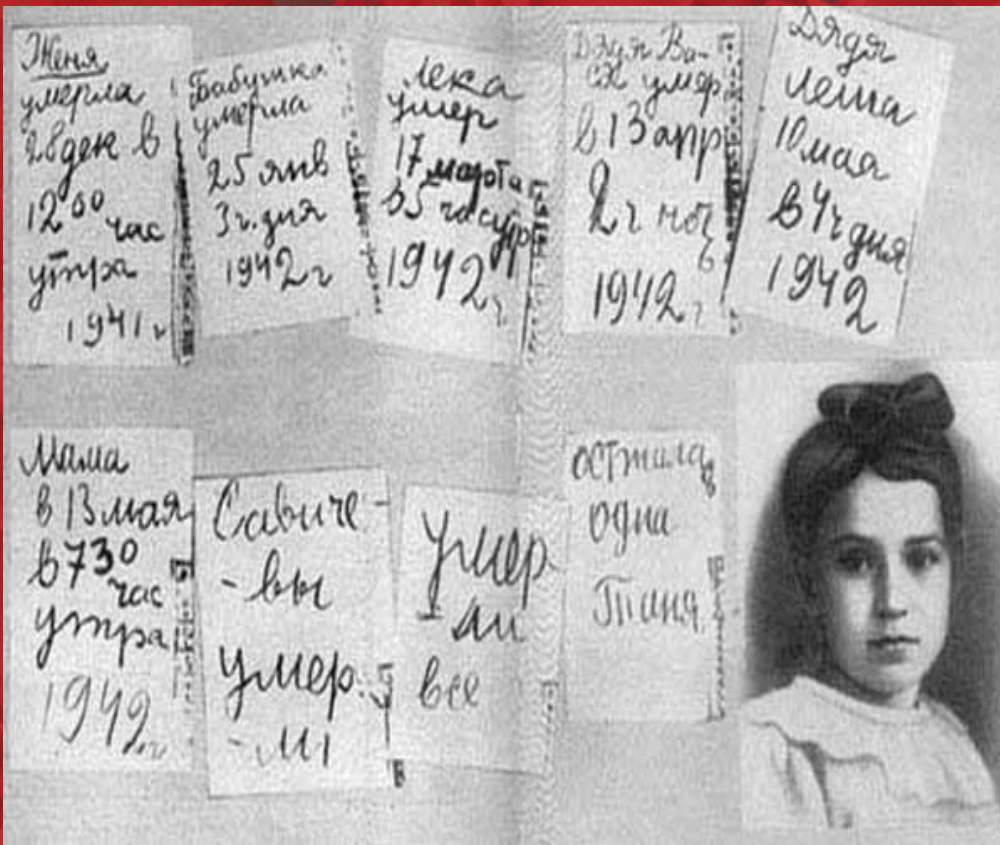 Женя
умерла
28 дек в
12 00 час
утра
1941 г
Бабушка
умерла
25 янв
3 ч. дня
1942 г
Лека
умер
17 марта
в 5 час утр
1942 г.
Дядя Ва-
ся умер
в 13 апр
2 ч ночь
1942 г
Дядя
Леша
10 мая
в 4 ч дня
1942
Мама
в 13 мая
в 7 30
час
утра
1942 г
Савиче-
-вы
умер-
-ли
Умер-
-ли
все
осталась
одна
Таня